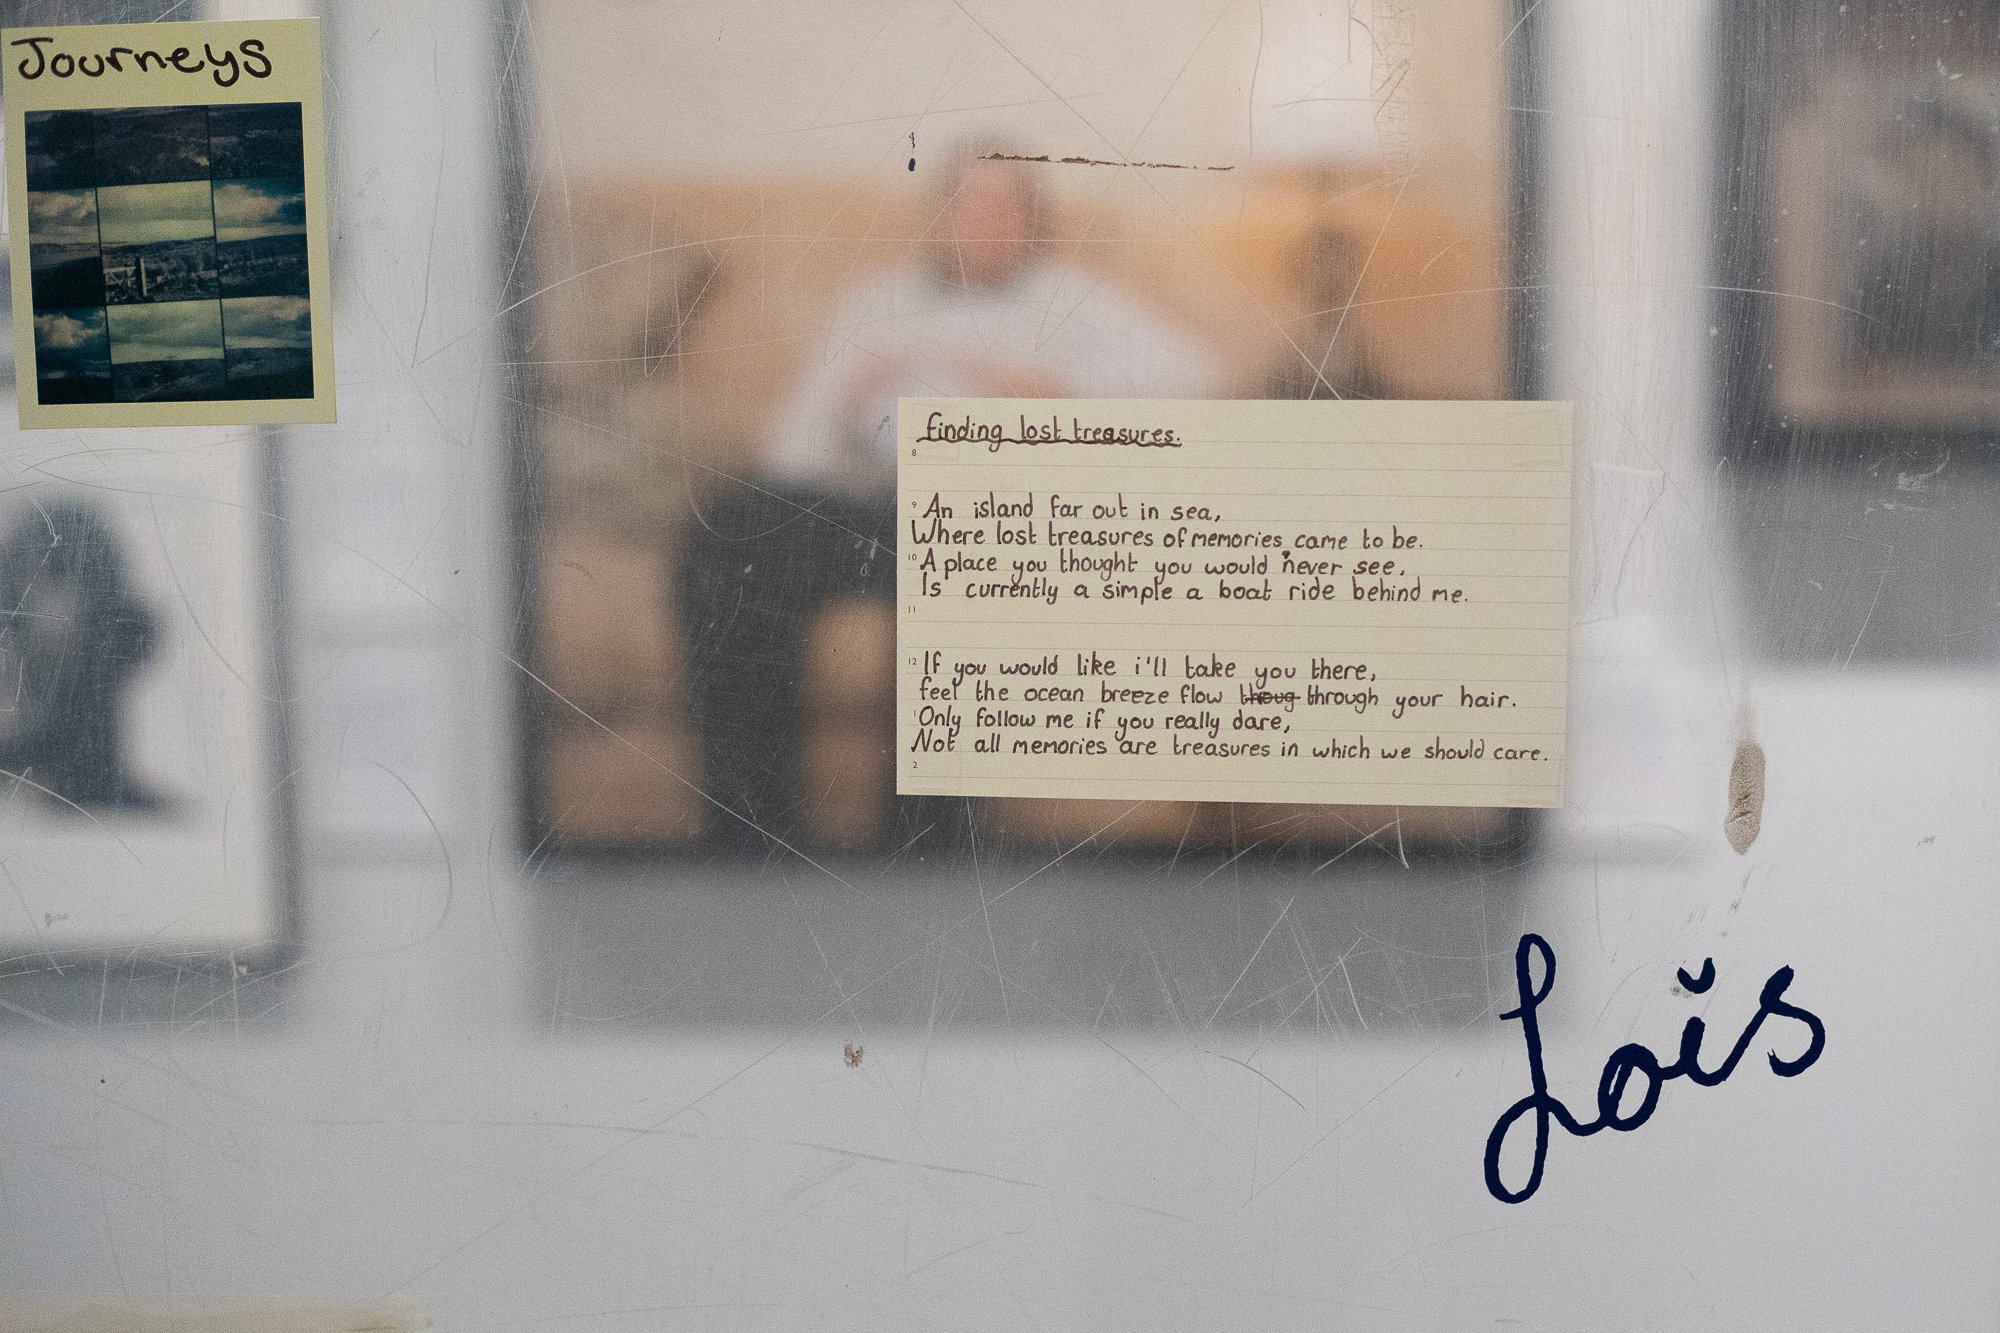 Journeys
finding lost treasures.
8
9 An island far out in sea,
Where lost treasures of memories came to be.
10 A place you thought you would never see,
Is currently a simple a boat ride behind me.
11
12 If you would like i'll take you there,
feel the ocean breeze flow thoug through your hair.
1 Only follow me if you really dare,
Not all memories are treasures in which we should care.
2
Loĭs